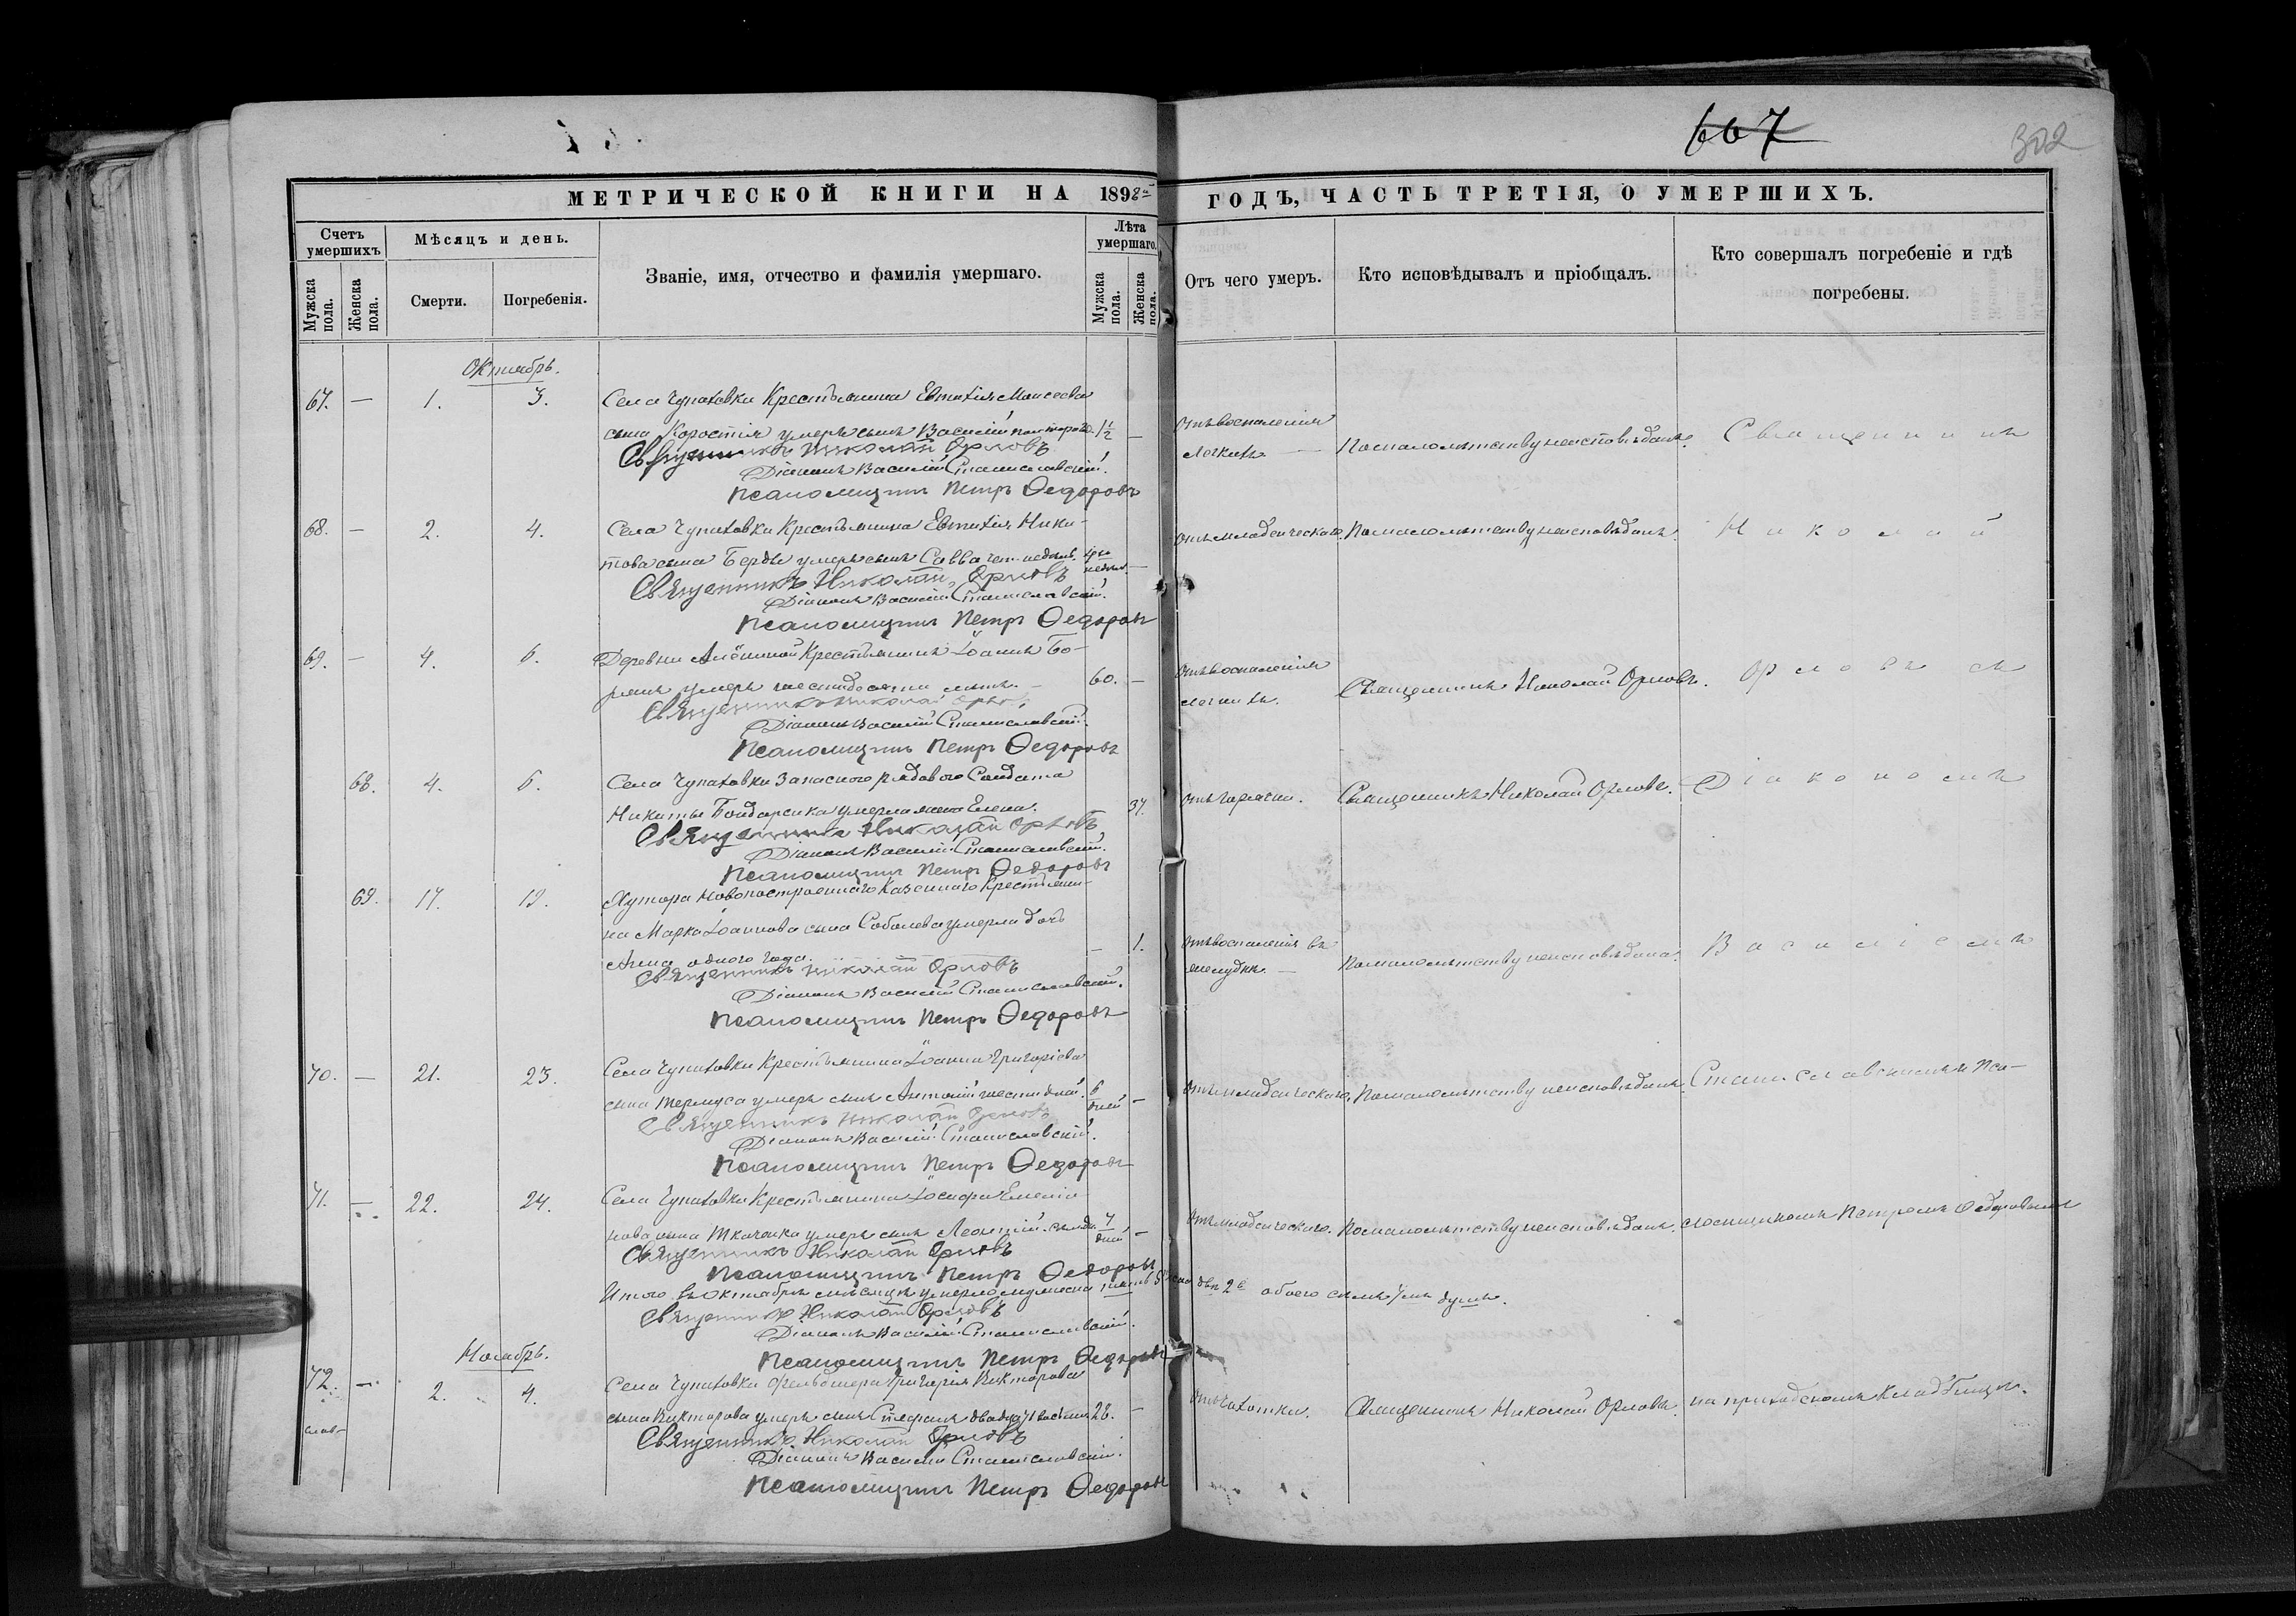 667
302
МЕТРИЧЕСКОЙ КНИГИ НА 1898 ГОДЪ, ЧАСТЬ ТРЕТІЯ, О УМЕРШИХЪ.
Счетъ умершихъ
Мѣсяцъ и день.
Званіе, имя, отчество и фамилія умершаго.
Лѣта умершаго.
Отъ чего умеръ.
Кто исповѣдывалъ и пріобщалъ.
Кто совершалъ погребеніе и гдѣ
погребены.
Мужска пола.
Женска пола.
Смерти.
Погребенія.
Мужска пола.
Женска пола.
Октябрь.
67. — 1. 3. Села Чупаховки Крестьянина Евтихія Моисеева
сына Коростія умеръ сынъ Василій полтора 1½ —
Отъ воспаленія
легкихъ — По малолѣтству неисповѣданъ. Священникъ
Священникъ Николай Орловъ
Діаконъ Василій Станиславскій.
Псаломщикъ Петръ Ѳедоровъ
68. — 2. 4. Села Чупаховки Крестьянина Евтихія Ники-
това сына Берды умеръ сынъ Савва чет. недѣль.
Отъ младенческаго. По малолѣтству неисповѣданъ. Николай
Священникъ Николай Орловъ
Діаконъ Василій Станиславскій.
Псаломщикъ Петръ Ѳедоровъ
69. — 4. 6. Деревни Алёшиной Крестьянинъ Іоаннъ Бо-
умеръ шестидесяти лѣтъ. — 60. —
Отъ воспаленія
легкихъ. Священникъ Николай Орловъ. Орловъ съ
Священникъ Николай Орловъ
Діаконъ Василій Станиславскій.
Псаломщикъ Петръ Ѳедоровъ
68. 4. 6. Села Чупаховки Запаснаго рядового Солдата
Никиты Бондаренка умерла жена Елена. 37.
Отъ горячки. Священникъ Николай Орловъ. Діакономъ
Священникъ Николай Орловъ
Діаконъ Василій Станиславскій.
Псаломщикъ Петръ Ѳедоровъ
69. 17. 19. Хутора Новопостроеннаго Казеннаго Крестьяни-
на Марка Іоаннова сына Соболева умерла дочь
Анна одного года. — 1.
Отъ воспаленія въ
желудкѣ. — По малолѣтству неисповѣдана. Василіемъ
Священникъ Николай Орловъ
Діаконъ Василій Станиславскій.
Псаломщикъ Петръ Ѳедоровъ
70. — 21. 23. Села Чупаховки Крестьянина Іоанна Григоріева
сына Термуса умеръ сынъ Антоній шести дней. 6 дней —
Отъ младенческаго. По малолѣтству неисповѣданъ. Станиславскимъ и Пса-
Священникъ Николай Орловъ
Діаконъ Василій Станиславскій.
Псаломщикъ Петръ Ѳедоровъ
71. — 22. 24. Села Чупаховки Крестьянина Іосифа Емелія-
нова сына Ткаченка умеръ сынъ Леонтій 7 дней —
Отъ младенческаго. По малолѣтству неисповѣданъ. ломщикомъ Петромъ Ѳедоровымъ
Священникъ Николай Орловъ
Псаломщикъ Петръ Ѳедоровъ
Итого въ октябрѣ мѣсяцѣ умерло мужеска двѣ 2 обоего семь 7 душъ.
Священникъ Николай Орловъ
Діаконъ Василій Станиславскій.
Псаломщикъ Петръ Ѳедоровъ
Ноябрь.
72. — 2. 4. Села Чупаховки фельдшера Григорія Викторова
сына Викторова умеръ сынъ Стефанъ двадцати восьми 28. —
Отъ чахотки. Священникъ Николай Орловъ. на приходскомъ кладбищѣ.
Священникъ Николай Орловъ
Діаконъ Василій Станиславскій.
Псаломщикъ Петръ Ѳедоровъ